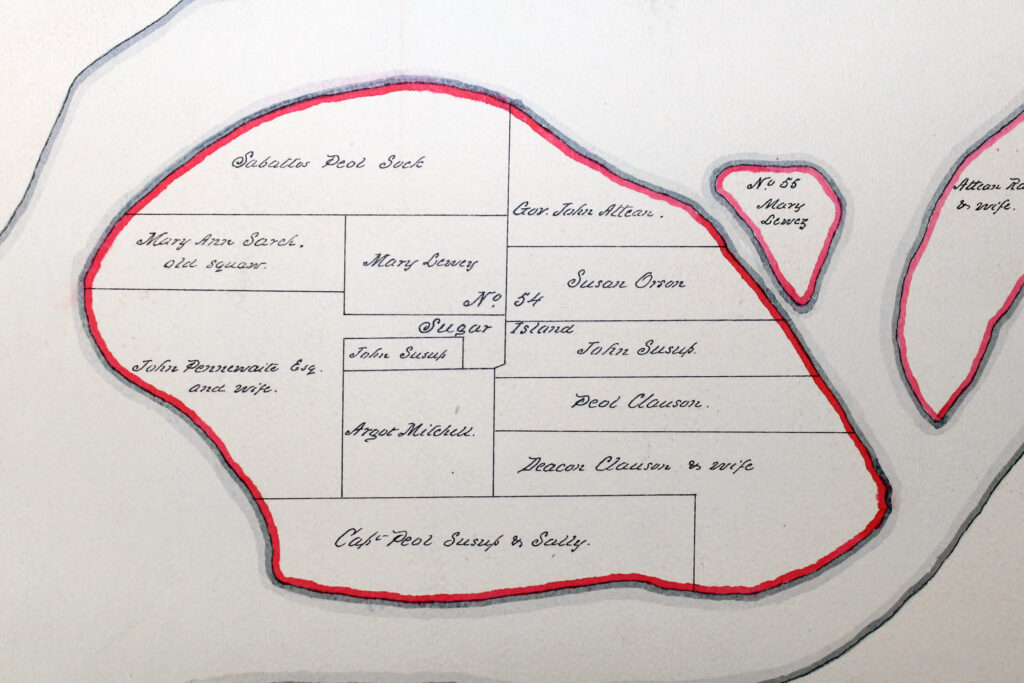 Sabattus Peol Sock
Gov. John Attean.
Mary Ann Sarch.
old squaw.
Mary Lewey
Susan Orson
No. 54
Sugar Island
John Pennewaite Esq.
and wife.
John Susup
John Susup.
Peol Clauson.
Argot Mitchell.
Deacon Clauson & wife
Capt. Peol Susup & Sally.
No 55
Mary
Lewey
Attean
& wife.